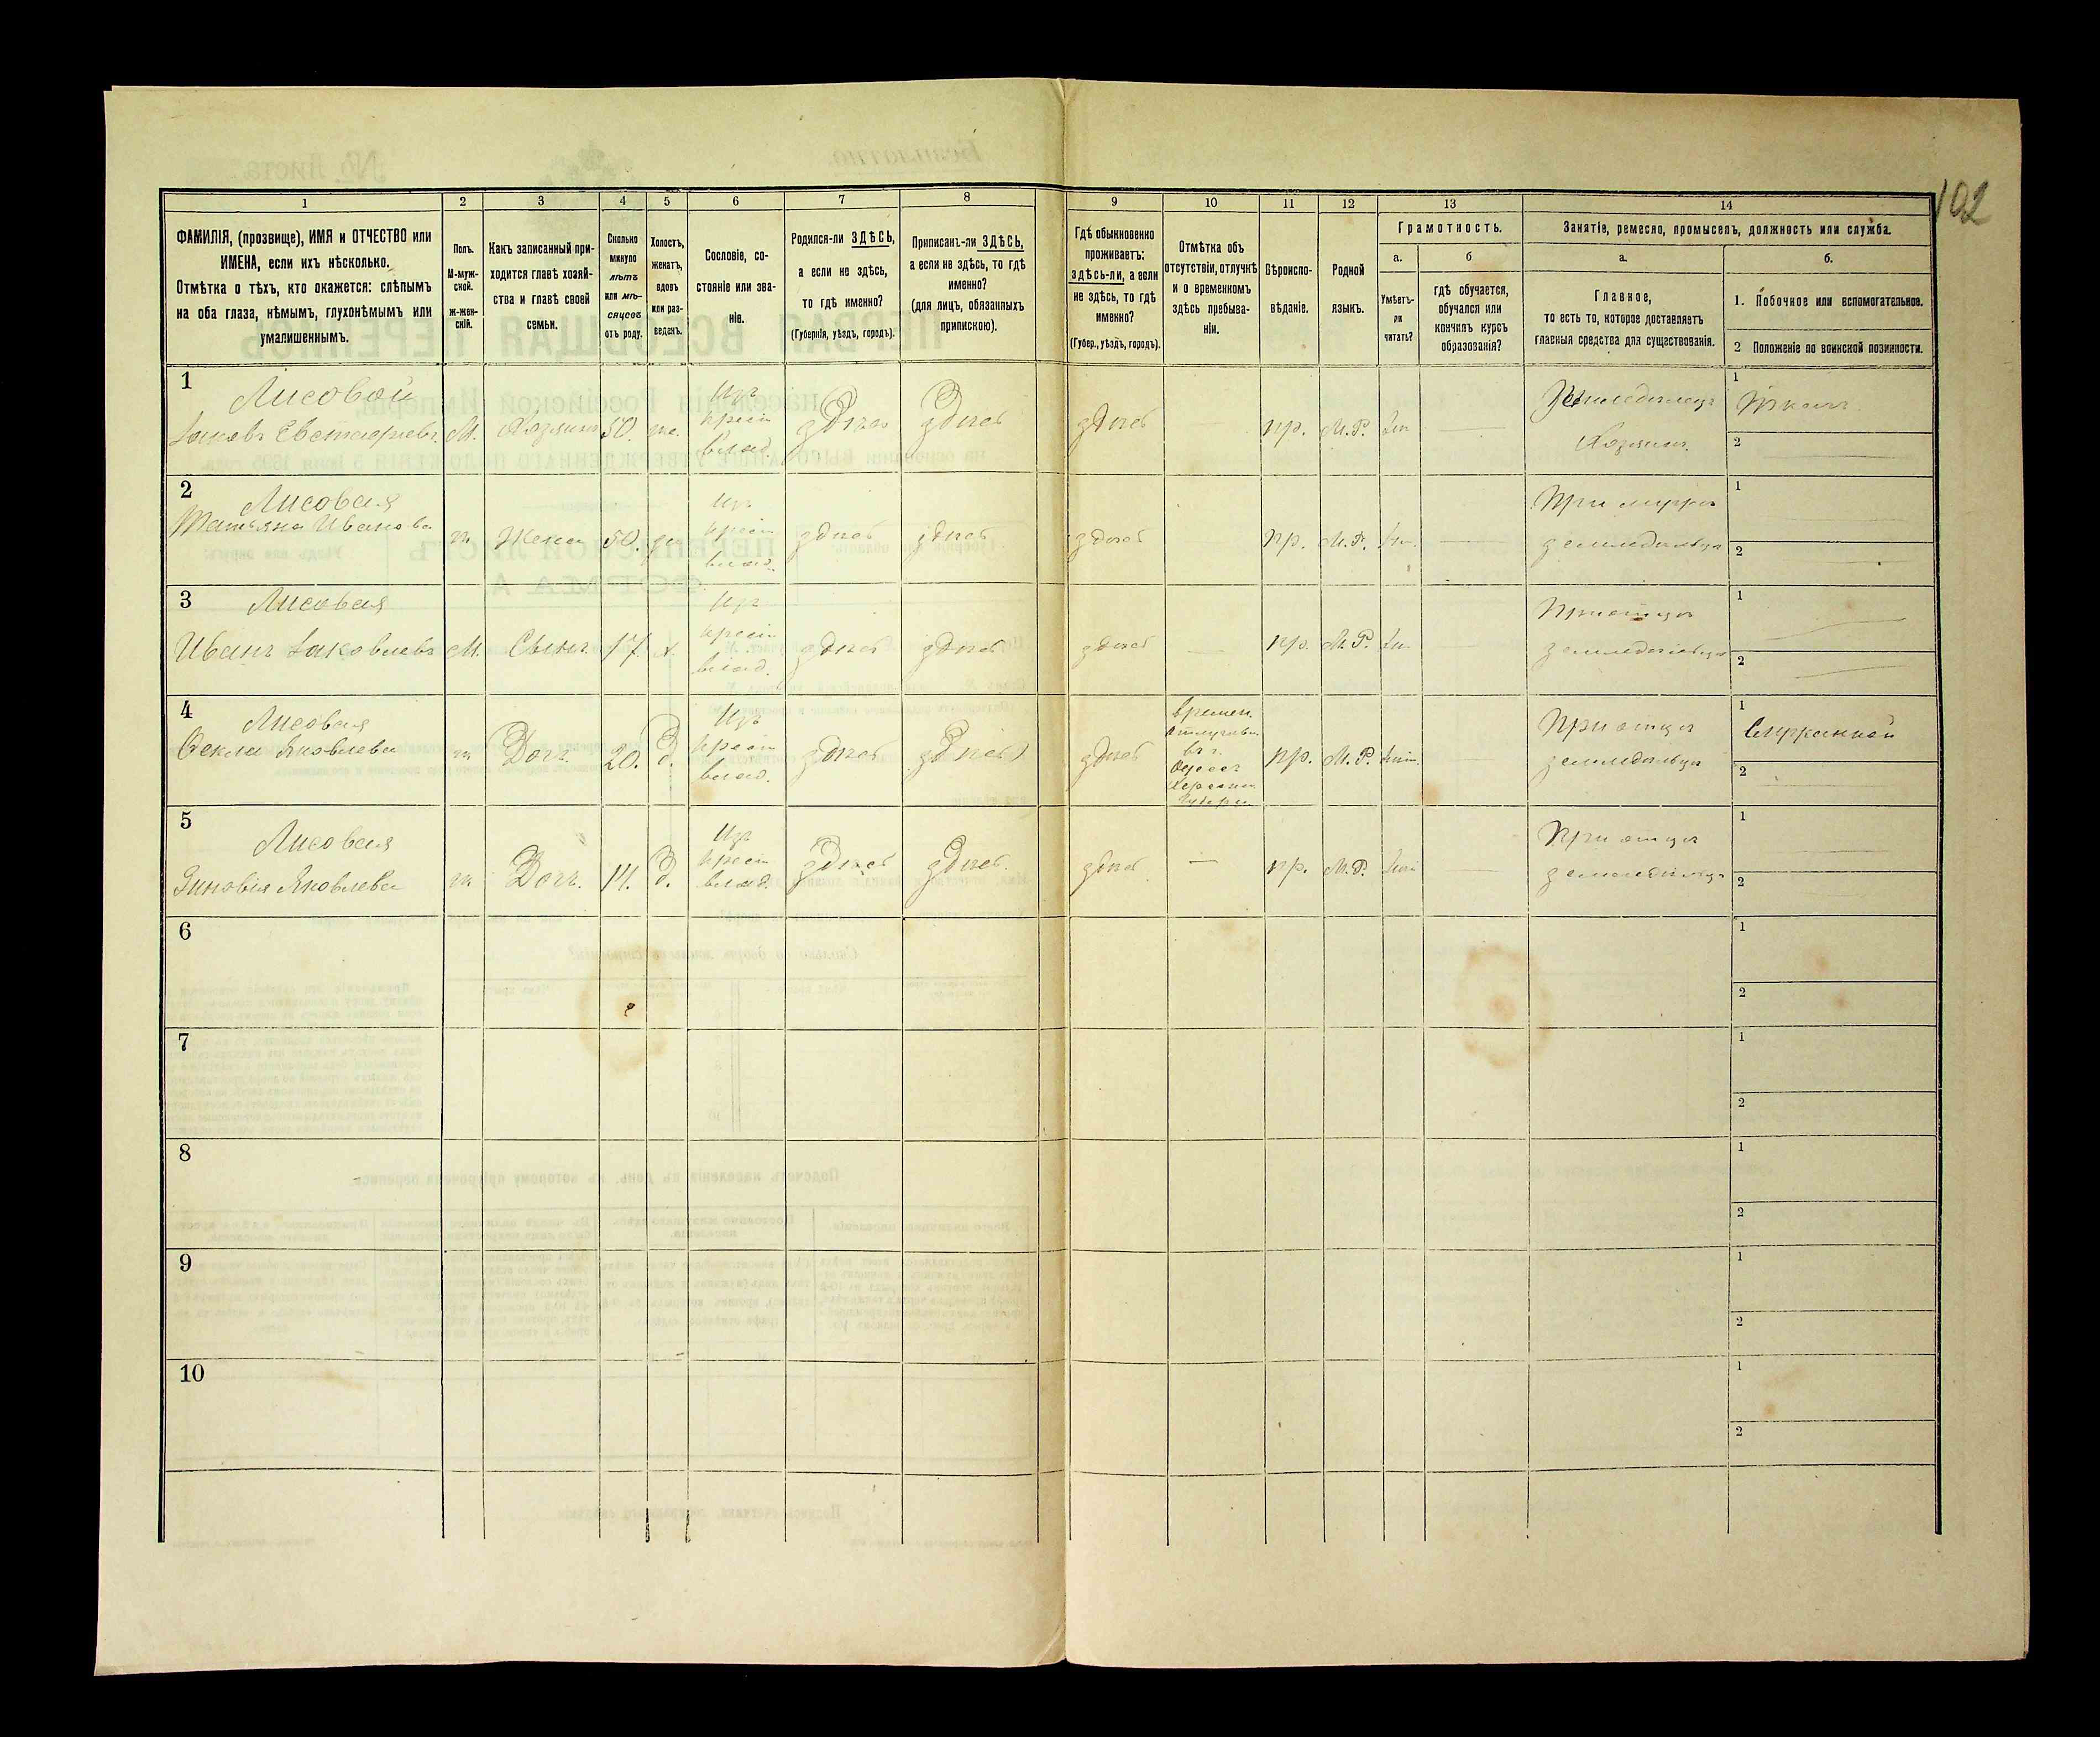 102
1
2
3
4
5
6
7
8
9
10
11
12
13
14
ФАМИЛІЯ, (прозвище), ИМЯ и ОТЧЕСТВО или
ИМЕНА, если ихъ нѣсколько.
Отмѣтка о тѣхъ, кто окажется: слѣпымъ
на оба глаза, нѣмымъ, глухонѣмымъ или
умалишеннымъ.
Полъ.
М-муж-
ской.
ж-жен-
скій.
Какъ записанный при-
ходится главѣ хозяй-
ства и главѣ своей
семьи.
Сколько
минуло
лѣтъ
или мѣ-
сяцевъ
отъ роду.
Холостъ,
женатъ,
вдовъ
или раз-
веденъ.
Сословіе, со-
стояніе или зва-
ніе.
Родился-ли ЗДѢСЬ,
а если не здѣсь,
то гдѣ именно?
(Губернія, уѣздъ, городъ).
Приписанъ-ли ЗДѢСЬ,
а если не здѣсь, то гдѣ
именно?
(для лицъ, обязанныхъ
припискою).
Гдѣ обыкновенно
проживаетъ:
здѣсь-ли, а если
не здѣсь, то гдѣ
именно?
(Губер., уѣздъ, городъ).
Отмѣтка объ
отсутствіи, отлучкѣ
и о временномъ
здѣсь пребыва-
ніи.
Вѣроиспо-
вѣданіе.
Родной
языкъ.
Грамотность.
а.
Умѣетъ-
ли
читать?
б
гдѣ обучается,
обучался или
кончилъ курсъ
образованія?
Занятіе, ремесло, промыселъ, должность или служба.
а.
Главное,
то есть то, которое доставляетъ
главныя средства для существованія.
б.
1. Побочное или вспомогательное.
2 Положеніе по воинской повинности.
1
Лисовой
Іаковъ М. Хозяинъ 50. же.
Изъ
крест
влад.
здѣсь здѣсь здѣсь пр. М.Р.
Земледѣлецъ
Хозяинъ.
1
2
2
Лисовая
Татьяна Иванова ж Жена 50. за
Изъ
крест
влад.
здѣсь здѣсь здѣсь пр. М.Р.
При мужѣ
земледѣльцѣ
1
2
3
Лисовая
Иванъ Іаковлевъ М. Сынъ. 17. х.
Изъ
крест
влад.
здѣсь здѣсь здѣсь пр. М.Р.
При отцѣ
земледѣльцѣ
1
2
4
Лисовая
Ѳекла Яковлева ж Дочь. 20. д.
Изъ
крест
влад.
здѣсь здѣсь здѣсь
времен.
въ г.
Одессѣ
Херсон.
Губерн
пр. М.Р.
При отцѣ
земледѣльцѣ
1
2
5
Лисовая
Зиновія Яковлева ж Дочь. 14. д.
Изъ
крест
влад.
здѣсь здѣсь здѣсь пр. М.Р.
При отцѣ
земледѣльцѣ
1
2
6
1
2
7
1
2
8
1
2
9
1
2
10
1
2